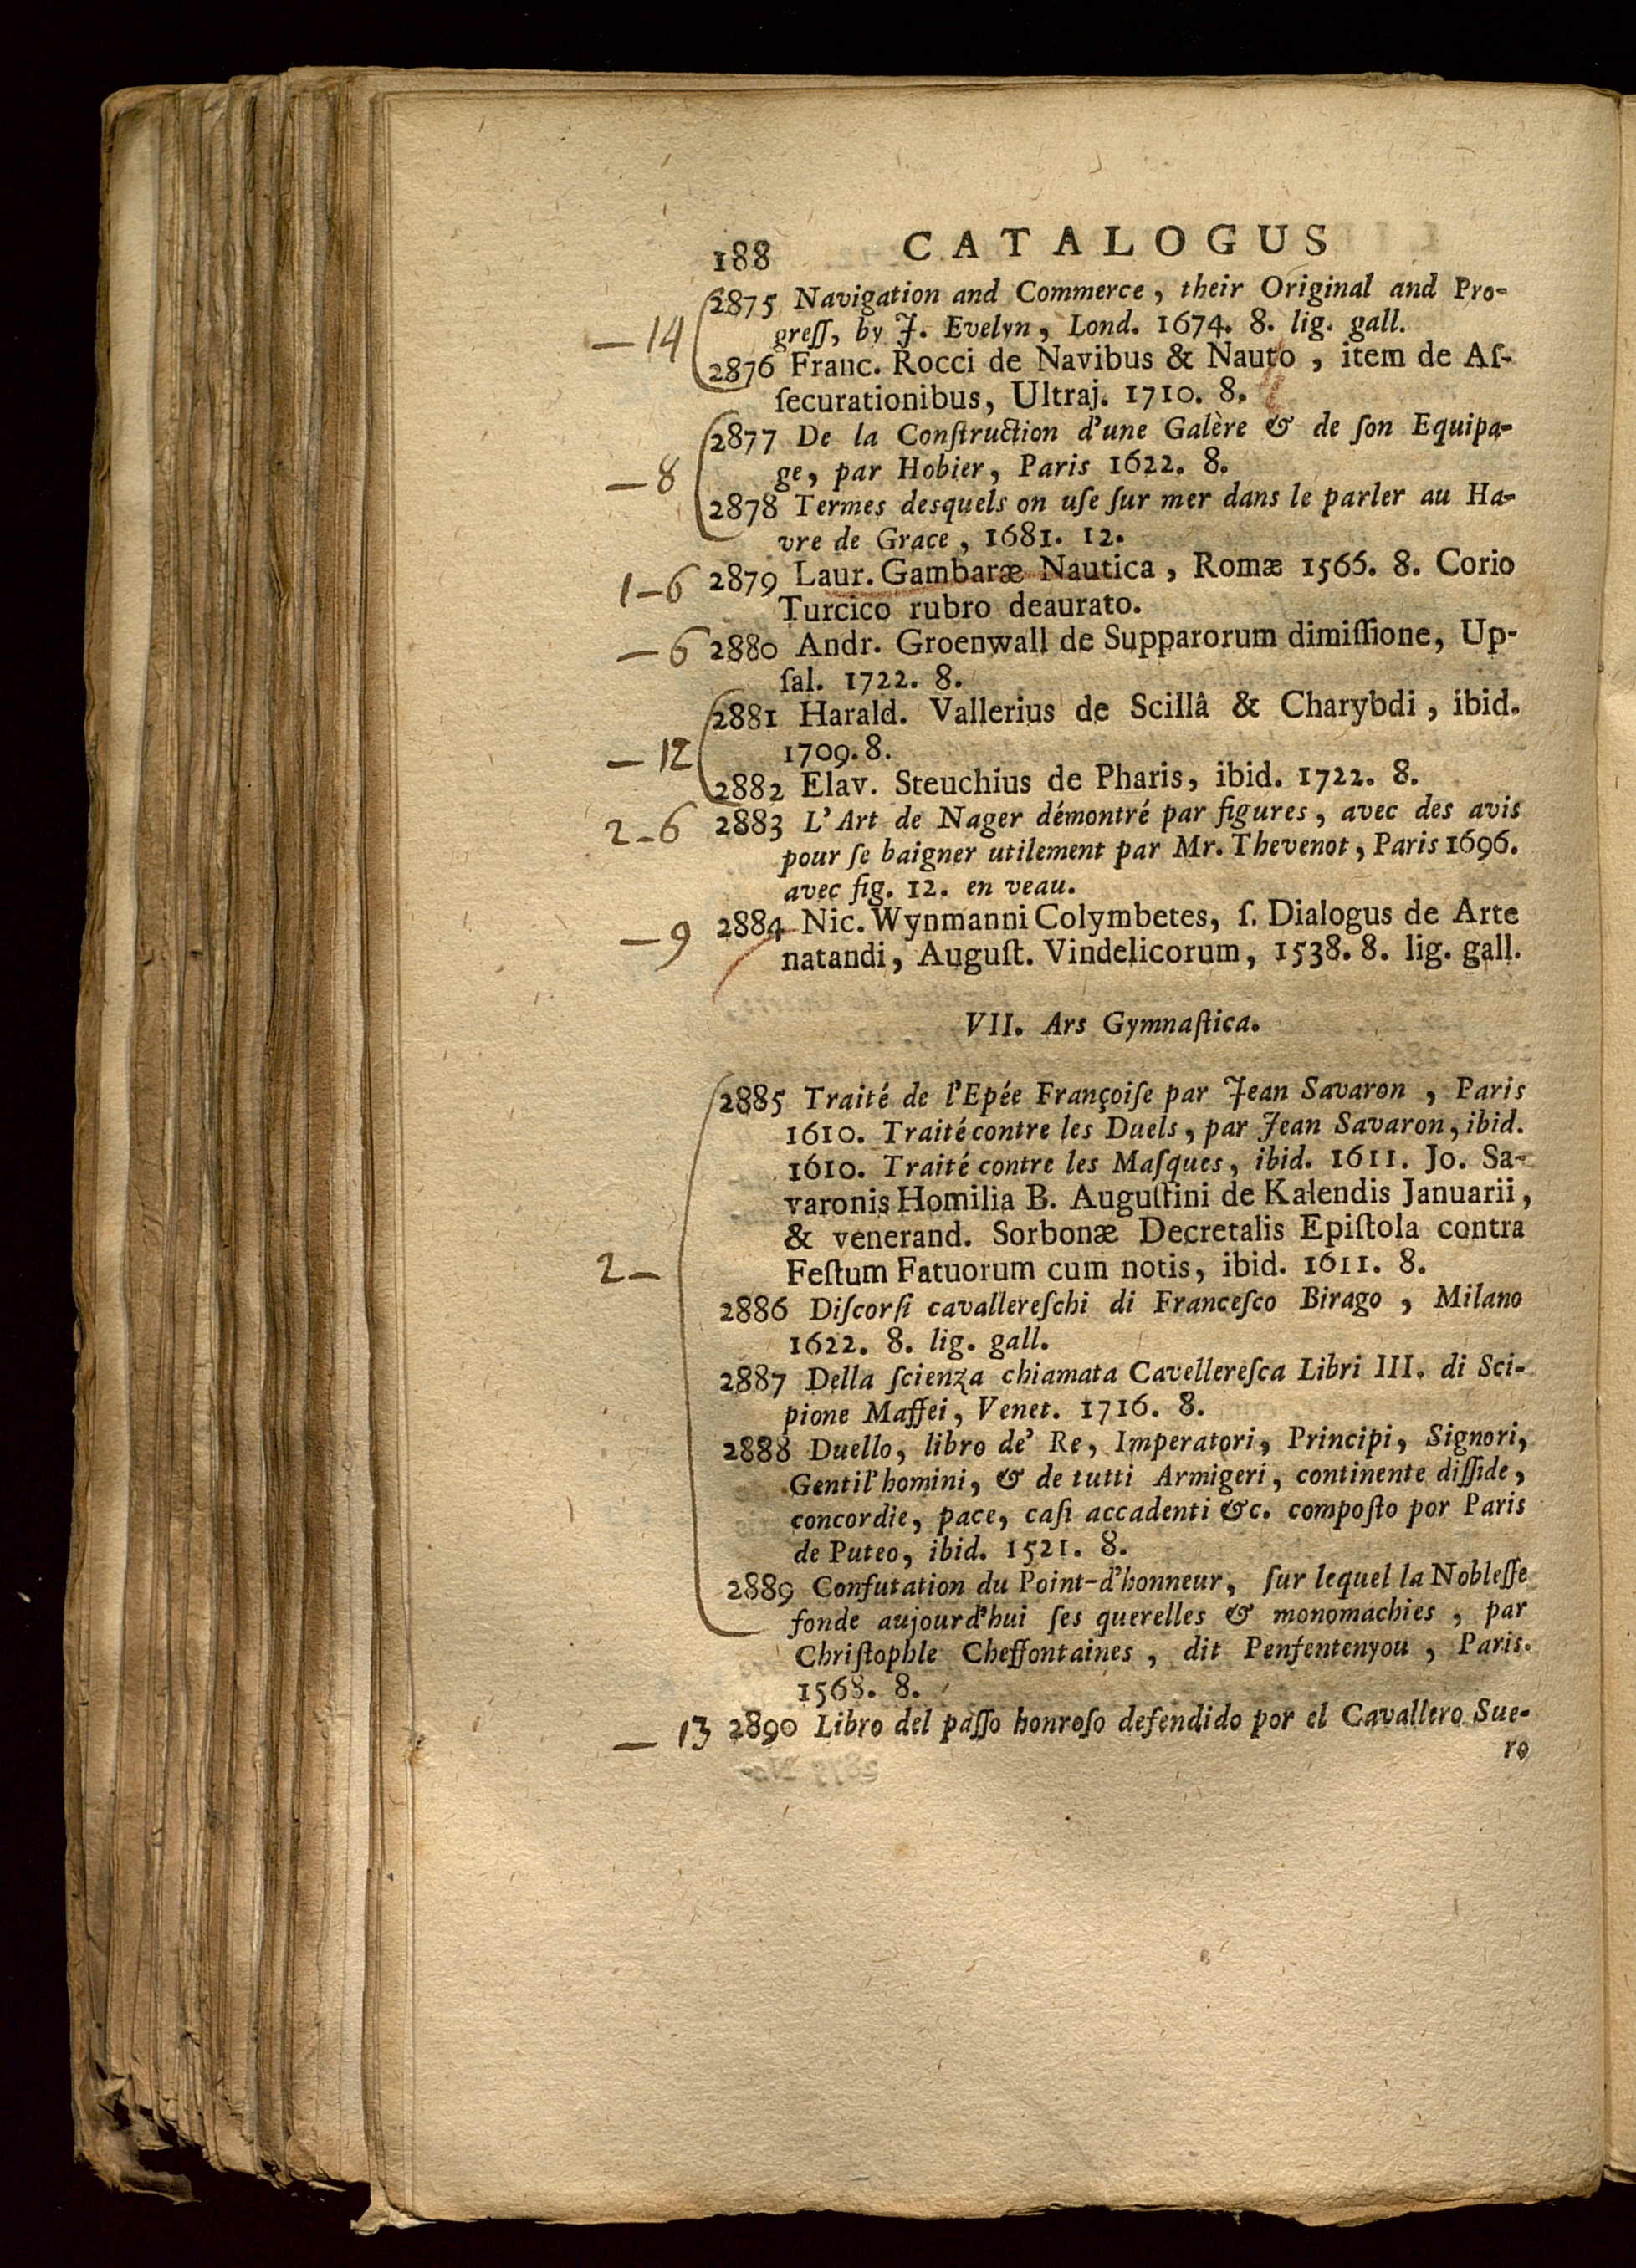 188 CATALOGUS
2875 Navigation and Commerce, their Original and Pro-
— 14 greſſ, by J. Evelyn, Lond. 1674. 8. lig. gall.
2876 Franc. Rocci de Navibus & Nauto, item de Aſ-
ſecurationibus, Ultraj. 1710. 8.
2877 De la Conſtruction d'une Galère & de ſon Equipa-
— 8 ge, par Hobier, Paris 1622. 8.
2878 Termes desquels on uſe ſur mer dans le parler au Ha-
vre de Grace, 1681. 12.
1–6 2879 Laur. Gambaræ Nautica, Romæ 1566. 8. Corio
Turcico rubro deaurato.
— 6 2880 Andr. Groenwall de Supparorum dimiſſione, Up-
ſal. 1722. 8.
2881 Harald. Vallerius de Scillâ & Charybdi, ibid.
— 12 1709. 8.
2882 Elav. Steuchius de Pharis, ibid. 1722. 8.
2-6 2883 L'Art de Nager démontré par figures, avec des avis
pour ſe baigner utilement par Mr. Thevenot, Paris 1696.
avec fig. 12. en veau.
— 9 2884 Nic. Wynmanni Colymbetes, ſ. Dialogus de Arte
natandi, Auguſt. Vindelicorum, 1538. 8. lig. gall.
VII. Ars Gymnaſtica.
2885 Traité de l'Epée Françoiſe par Jean Savaron, Paris
1610. Traité contre les Duels, par Jean Savaron, ibid.
1610. Traité contre les Maſques, ibid. 1611. Jo. Sa-
varonis Homilia B. Auguſtini de Kalendis Januarii,
& venerand. Sorbonæ Decretalis Epiſtola contra
2 — Feſtum Fatuorum cum notis, ibid. 1611. 8.
2886 Diſcorſi cavallereſchi di Franceſco Birago, Milano
1622. 8. lig. gall.
2887 Della ſcienza chiamata Cavellereſca Libri III. di Sci-
pione Maffei, Venet. 1716. 8.
2888 Duello, libro de' Re, Imperatori, Principi, Signori,
Gentil'homini, & de tutti Armigeri, continente diſſide,
concordie, pace, caſi accadenti &c. compoſto por Paris
de Puteo, ibid. 1521. 8.
2889 Confutation du Point-d'honneur, ſur lequel la Nobleſſe
fonde aujourd'hui ſes querelles & monomachies, par
Chriſtophle Cheffontaines, dit Penfentenyou, Paris.
1568. 8.
— 13 2890 Libro del paſſo honroſo defendido por el Cavallero Sue-
ro